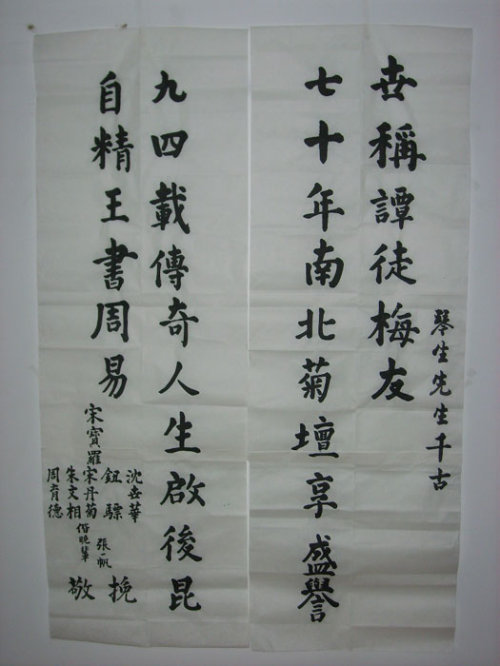 琴生先生千古
世稱譚徒梅友
七十年南北菊壇享盛譽
自精王書周易
九四載傳奇人生啟後昆
宋寶羅
宋丹菊
鈕驃
沈世華
朱文相
周育德
偕晚輩
張一帆
敬挽